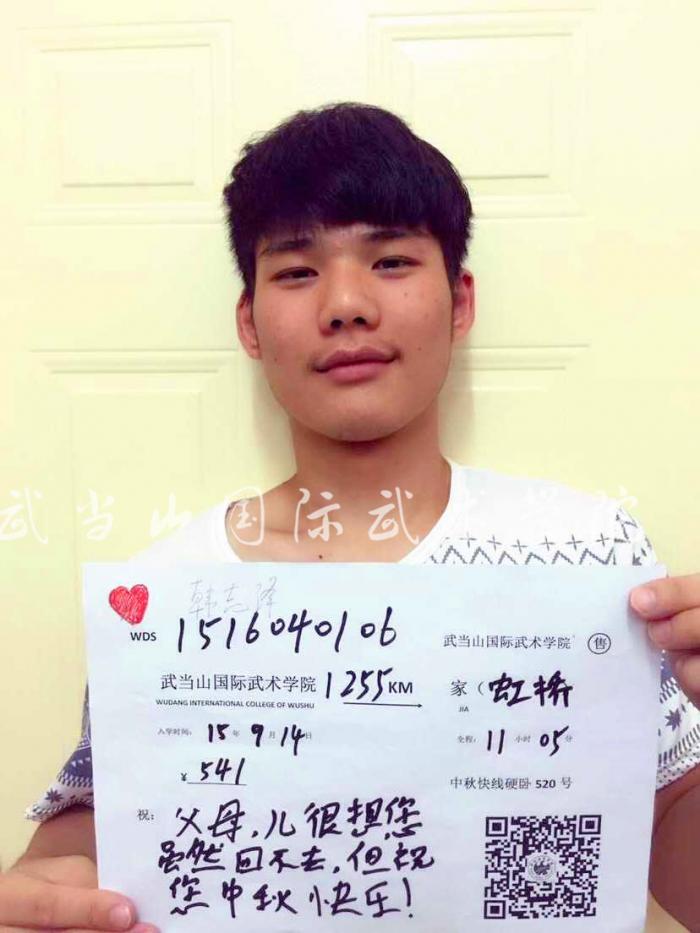 武当山国际武术学院
韩志泽
WDS
1516040106
武当山国际武术学院 售
武当山国际武术学院 1255KM
WUDANG INTERNATIONAL COLLEGE OF WUSHU
家（虹桥
JIA
入学时间： 15年 9月 14日
全程： 11小时 05分
¥ 541
中秋快线硬卧 520 号
祝： 父母，儿很想您
虽然回不去，但祝
您中秋快乐！